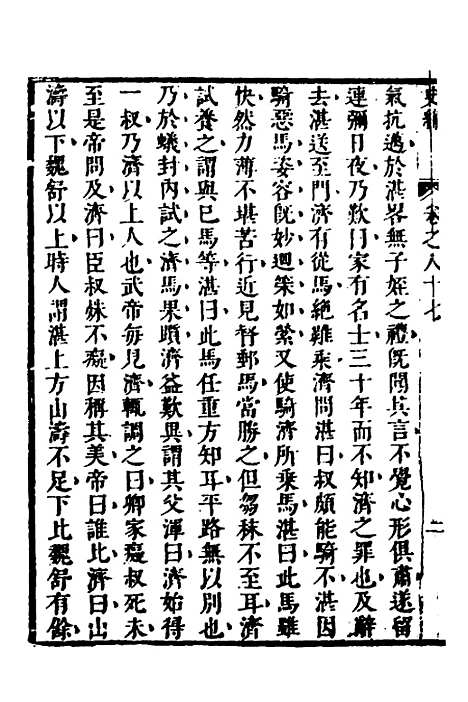 史緯 卷之八十七 二
氣抗邁於湛畧無子姪之禮旣聞其言不覺心形俱肅遂留
連彌日夜乃歎曰家有名士三十年而不知濟之罪也及辭
去湛送至門濟有從馬絶難乘濟問湛曰叔頗能騎不湛因
騎惡馬姿容旣妙廻策如縈又使騎濟所乘馬湛曰此馬雖
快然力薄不堪苦行近見督郵馬當勝之但芻秣不至耳濟
試養之謂與巳馬等湛曰此馬任重方知耳平路無以別也
乃於蟻封內試之濟馬果躓濟益歎異謂其父渾曰濟始得
一叔乃濟以上人也武帝每見濟輒調之曰卿家癡叔死未
至是帝問及濟曰臣叔妹不癡因稱其美帝曰誰比濟曰山
濤以下魏舒以上時人謂湛上方山濤不足下比魏舒有餘